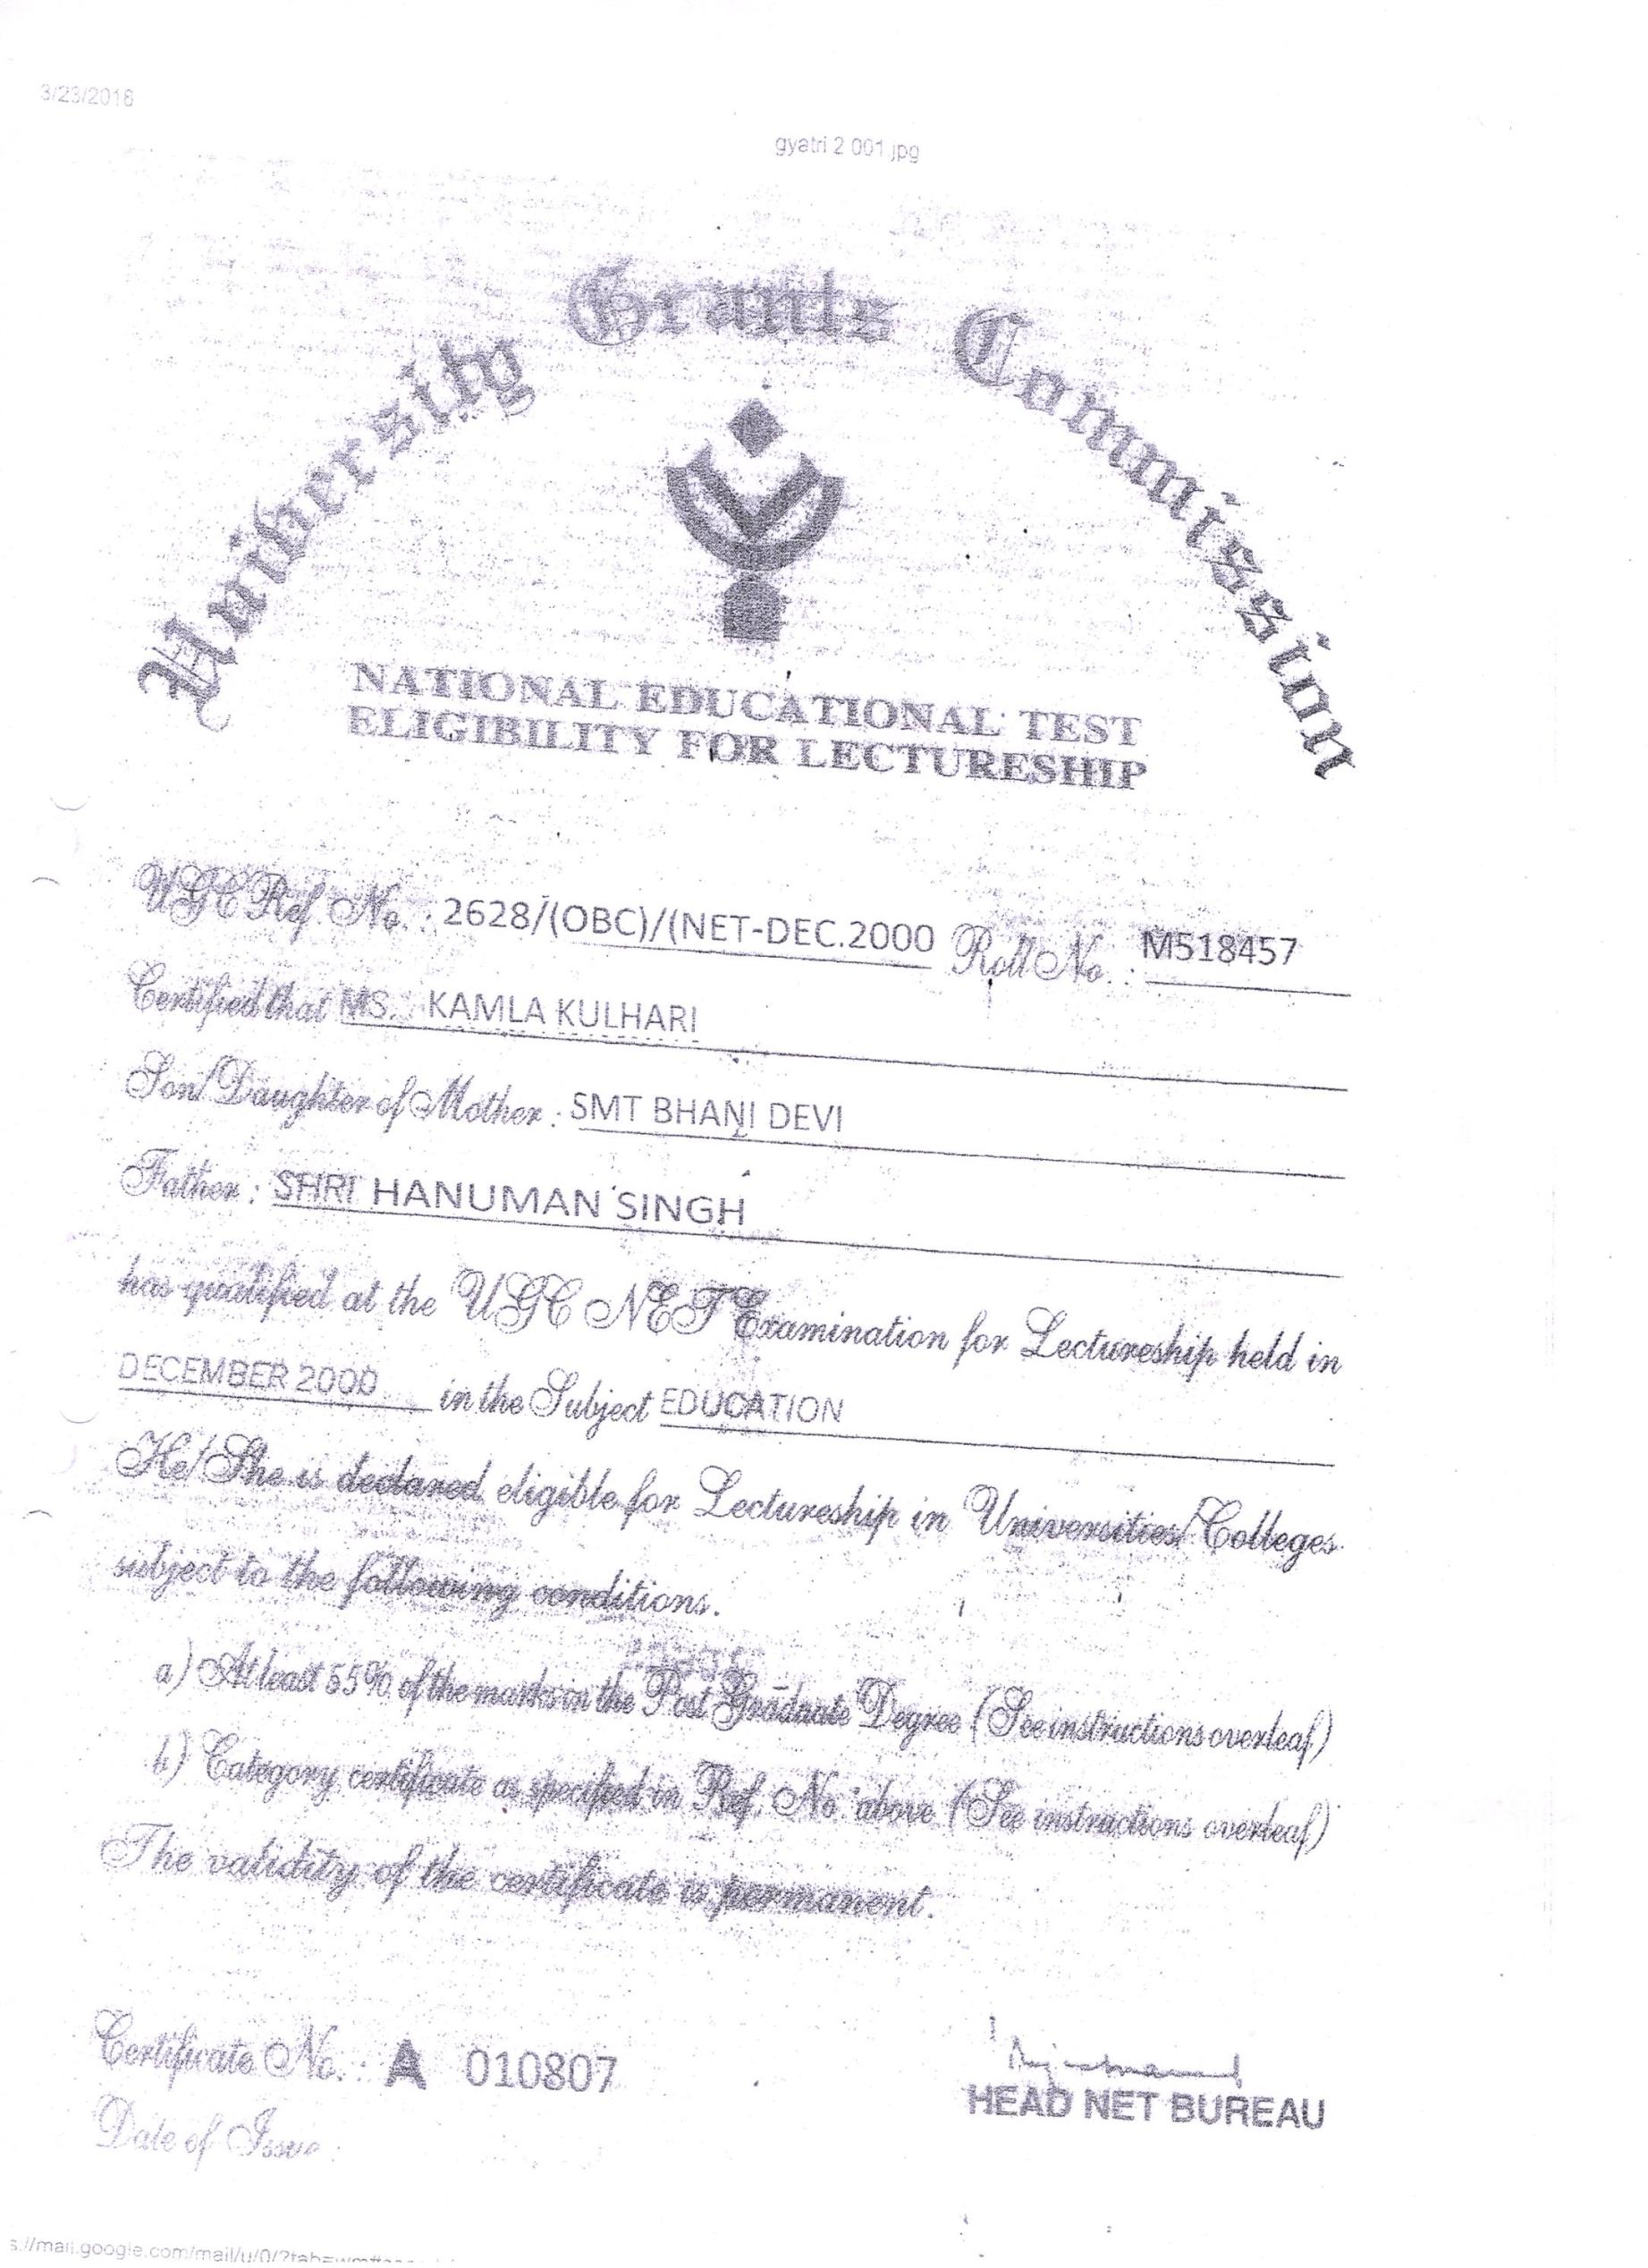 3/23/2016
gyatri 2 001.jpg
University Grants Commission
NATIONAL EDUCATIONAL TEST
ELIGIBILITY FOR LECTURESHIP
UGC Ref. No. : 2628/(OBC)/(NET-DEC.2000 Roll No. : M518457
Certified that MS. KAMLA KULHARI
Son/Daughter of Mother : SMT BHANI DEVI
Father : SHRI HANUMAN SINGH
has qualified at the UGC NET Examination for Lectureship held in
DECEMBER 2000 in the Subject EDUCATION
He/She is declared eligible for Lectureship in Universities/Colleges
subject to the following conditions.
a) At least 55% of the marks in the Post Graduate Degree (See instructions overleaf)
b) Category certificate as specified in Ref. No. above (See instructions overleaf)
The validity of the certificate is permanent.
Certificate No. : A 010807
HEAD NET BUREAU
Date of Issue :
s://mail.google.com/mail/u/0/?tab=wm#